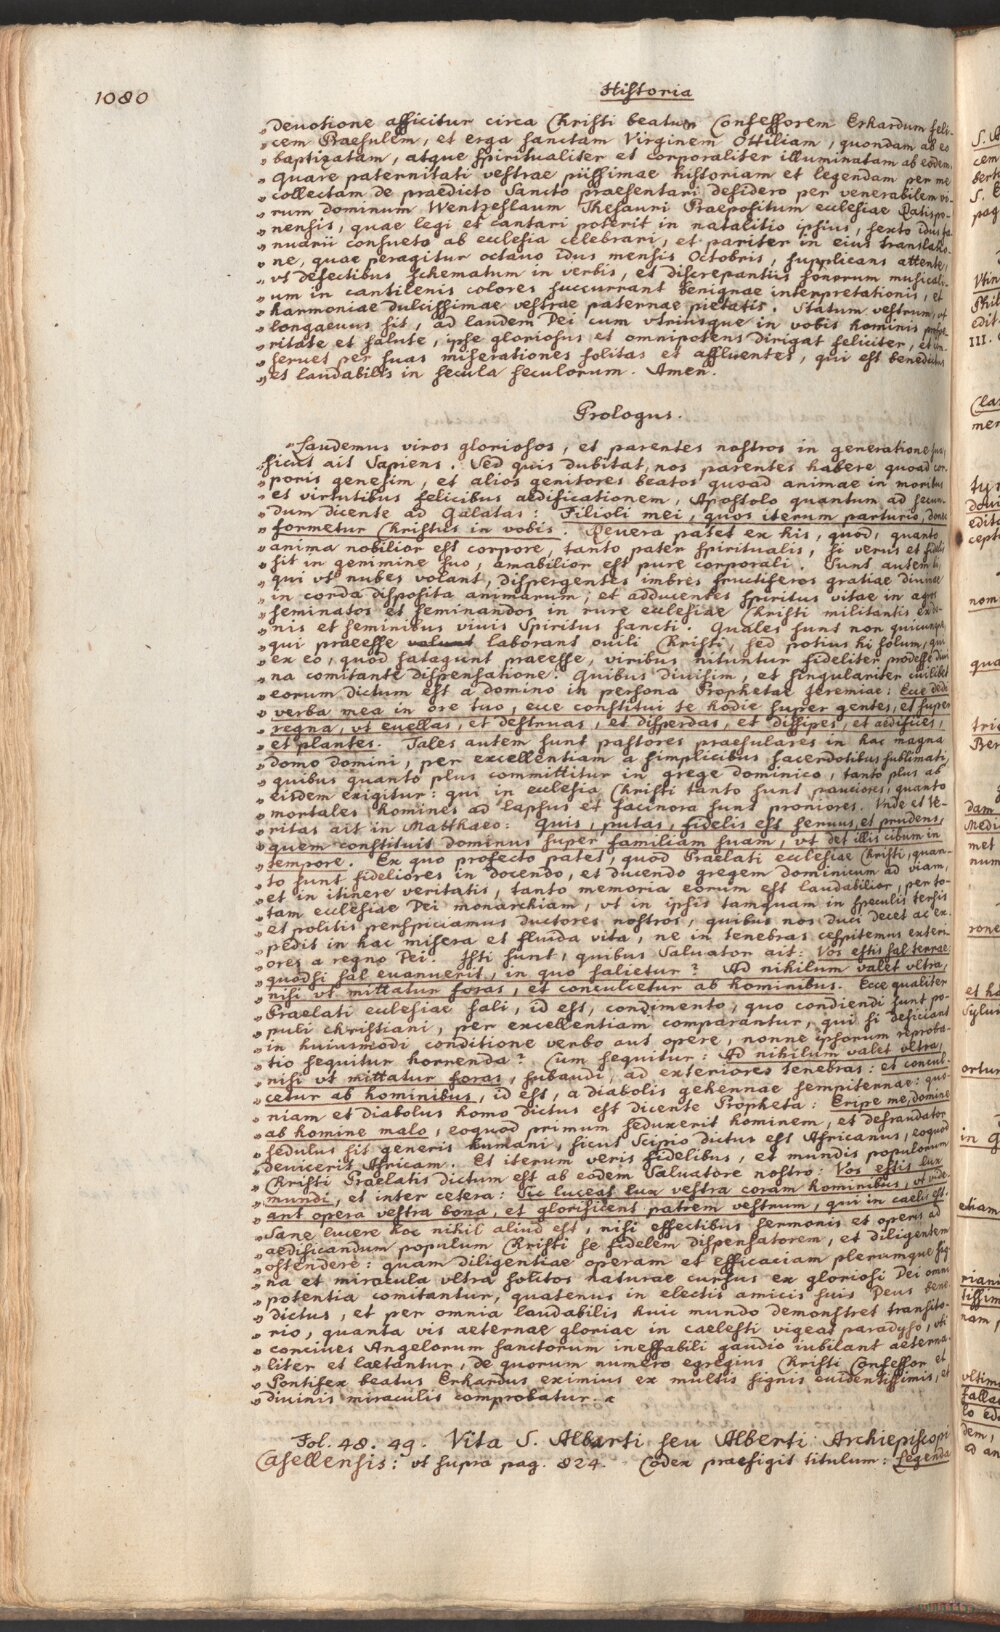 1080
Historia
„devotione afficitur circa Christi beatum Confessorem Erhardum feli-
„cem Praesulem, et erga sanctam Virginem Ottiliam, quondam ab eo
„baptizatam, atque spiritualiter et corporaliter illuminatam ab eodem,
„Quare paternitati vestrae piissimae historiam et legendam per me
„collectam de praedicto Sancto praesentari desidero per venerabilem vi-
„rum dominum Wentzeslaum Thesauri Praepositum ecclesiae Ratispo-
„nensis, quae legi et cantari poterit in natalitio ipsius, sexto idus Ja-
„nuarii consueto ab ecclesia celebrari, et pariter in eius translatio-
„ne, quae peragitur octavo idus mensis Octobris, supplicans attente,
„vt defectibus schematum in verbis, et discrepantiis sonorum musicali-
„um in cantilenis colores succurrant benignae interpretationis, et
„harmoniae dulcissimae vestrae paternae pietatis. Statum vestrum, vt
„longaeuus sit, ad laudem Dei cum vtriusque in vobis hominis prospe-
„ritate et salute, ipse gloriosus et omnipotens dirigat feliciter, et con-
„seruet per suas miserationes solitas et affluentes, qui est benedictus
„et laudabilis in secula seculorum. Amen.
Prologus.
„Laudemus viros gloriosos, et parentes nostros in generatione sua,
„sicut ait Sapiens. Sed quis dubitat, nos parentes habere quoad cor-
„poris genesim, et alios genitores beatos quoad animae in moribus
„et virtutibus felicibus aedificationem, Apostolo quantum ad secun-
„dum dicente ad Galatas: Filioli mei, quos iterum parturio, donec
„formetur Christus in vobis. Reuera patet ex his, quod, quanto
„anima nobilior est corpore, tanto pater spiritualis, si verus et fidelis
„sit in genimine suo, amabilior est pure corporali. Sunt autem hi,
„qui vt nubes volant, dispergentes imbres fructiferos gratiae divinae
„in corda disposita animarum, et adducentes spiritus vitae in agros
„seminatos et seminandos in rure ecclesiae Christi militantis
„nis et seminibus viuis Spiritus sancti. Quales sunt non quicunque,
„qui praeesse volunt laborant ouili Christi, sed potius hi solum, qui
„ex eo, quod satagunt praeesse, viribus nituntur fideliter prodesse divi-
„na comitante dispensatione. Quibus divisim, et singulariter cuilibet
„eorum dictum est a domino in persona Prophetae Jeremiae: Ecce dedi
„verba mea in ore tuo, ecce constitui te hodie super gentes, et super
„regna, vt euellas, et destruas, et disperdas, et dissipes, et aedifices,
„et plantes. Tales autem sunt pastores praesulares in hac magna
„domo domini, per excellentiam a simplicibus sacerdotibus sublimati,
„quibus quanto plus committitur in grege dominico, tanto plus ab
„eisdem exigitur: qui in ecclesia Christi tanto sunt pauciores, quanto
„mortales homines ad lapsus et facinora sunt proniores. Vnde et Ve-
„ritas ait in Matthaeo: Quis, putas, fidelis est seruus, et prudens,
„quem constituit dominus super familiam suam, vt det illis cibum in
„tempore. Ex quo profecto patet, quod Praelati ecclesiae Christi, quan-
„to sunt fideliores in docendo, et ducendo gregem dominicum ad viam,
„et in itinere veritatis, tanto memoria eorum est laudabilior, per to-
„tam ecclesiae Dei monarchiam, vt in ipsis tamquam in speculis tersis
„et politis perspiciamus ductores nostros, quibus nos duci decet ac ex-
„pedit in hac misera et fluida vita, ne in tenebras cespitemus exteri-
„ores a regno Dei. Isti sunt, quibus Saluator ait: Vos estis sal terrae
„quodsi sal euanuerit, in quo salietur? Ad nihilum valet vltra,
„nisi vt mittatur foras, et conculcetur ab hominibus. Ecce qualiter
„Praelati ecclesiae sali, id est, condimento, quo condiendi sunt po-
„puli christiani, per excellentiam comparantur, qui si deficiant
„in huiusmodi conditione verbo aut opere, nonne ipsorum reproba-
„tio sequitur horrenda? Cum sequitur: Ad nihilum valet vltra,
„nisi vt mittatur foras, subaudi, ad exteriores tenebras: et concul-
„cetur ab hominibus, id est, a diabolis gehennae sempiternae: quo-
„niam et diabolus homo dictus est dicente Propheta: Eripe me, domine
„ab homine malo, eoquod primum seduxerit hominem, et defraudator
„sedulus sit generis humani, sicut Scipio dictus est Africanus, eoquod
„devicerit Africam. Et iterum veris fidelibus, et mundis populorum
„Christi Praelatis dictum est ab eodem Saluatore nostro: Vos estis lux
„mundi, et inter cetera: Sic luceat lux vestra coram hominibus, vt vide-
„ant opera vestra bona, et glorificent patrem vestrum, qui in caelis est.
„Sane lucere hoc nihil aliud est, nisi effectibus sermonis et operis ad
„aedificandum populum Christi se fidelem dispensatorem, et diligentem
„ostendere: quam diligentiae operam et efficaciam plerumque sig-
„na et miracula vltra solitos naturae cursus ex gloriosi Dei omni
„potentia comitantur, quatenus in electis amicis suis Deus bene-
„dictus, et per omnia laudabilis huic mundo demonstret transito-
„rio, quanta vis aeternae gloriae in caelesti vigeat paradyso, vti
„conciues Angelorum sanctorum ineffabili gaudio iubilant aeterna-
„liter et laetantur, de quorum numero egregius Christi Confessor et
„Pontifex beatus Erhardus eximius ex multis signis euidentissimis, et
„divinis miraculis comprobatur. „
Fol. 48. 49. Vita S. Alberti seu Alberti Archiepiscopi
Casellensis: vt supra pag. 824. Codex praefigit titulum: Legenda